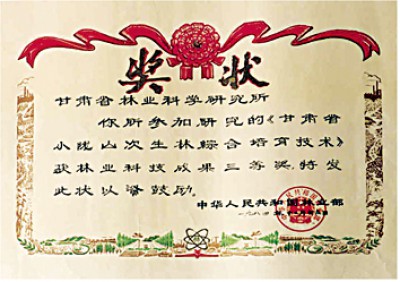 奖状
甘肃省林业科学研究所
你所参加研究的《甘肃省
小陇山次生林综合培育技术》
获林业科技成果三等奖。特发
此状以资鼓励。
中华人民共和国林业部